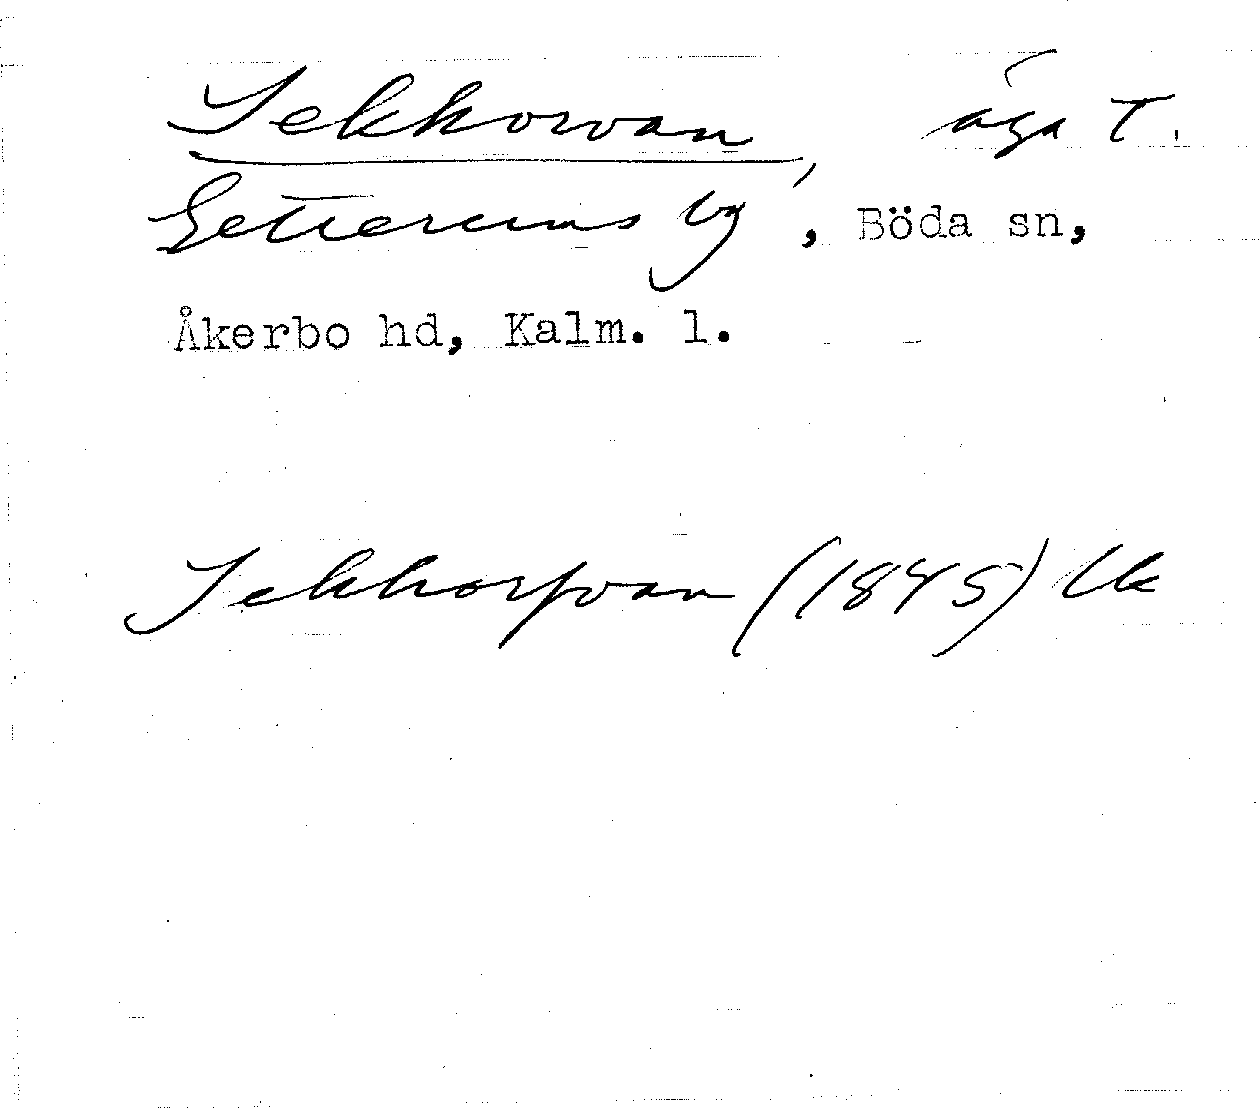 Sekkorvan, äga t.
Getterums by, Böda sn,
Åkerbo hd, Kalm. l.
Sekkorfvan (1845) Uk